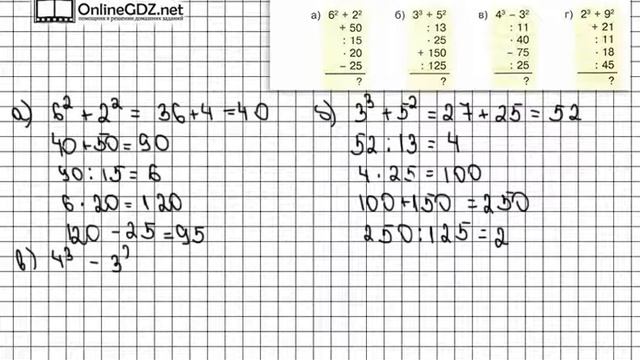 OnlineGDZ.net
помощник в решении домашних заданий
а) 6² + 2²
+ 50
: 15
· 20
− 25
?
б) 3³ + 5²
: 13
· 25
+ 150
: 125
?
в) 4³ − 3²
: 11
· 40
− 75
: 25
?
г) 2³ + 9²
+ 21
: 11
· 18
: 45
?
а) 6² + 2² = 36+4 = 40
40+50=90
90:15=6
6·20=120
120−25=95
б) 3³ + 5² = 27+25 = 52
52:13=4
4·25=100
100+150=250
250:125=2
в) 4³ − 3²